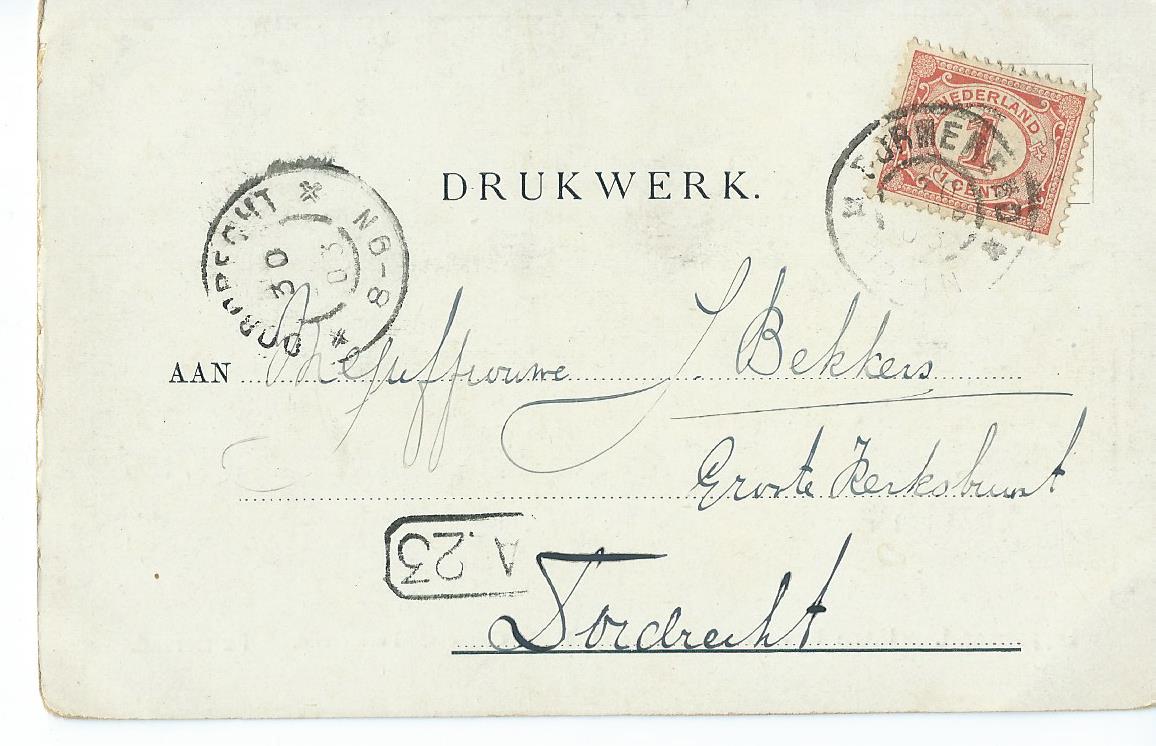 NEDERLAND
1
1 CENT
PURMERE
DRUKWERK.
DORDRECHT
N 6-8
30
03
AAN Mejuffrouwe J. Bekkers
Groote Kerksbuurt
A.23
Dordrecht